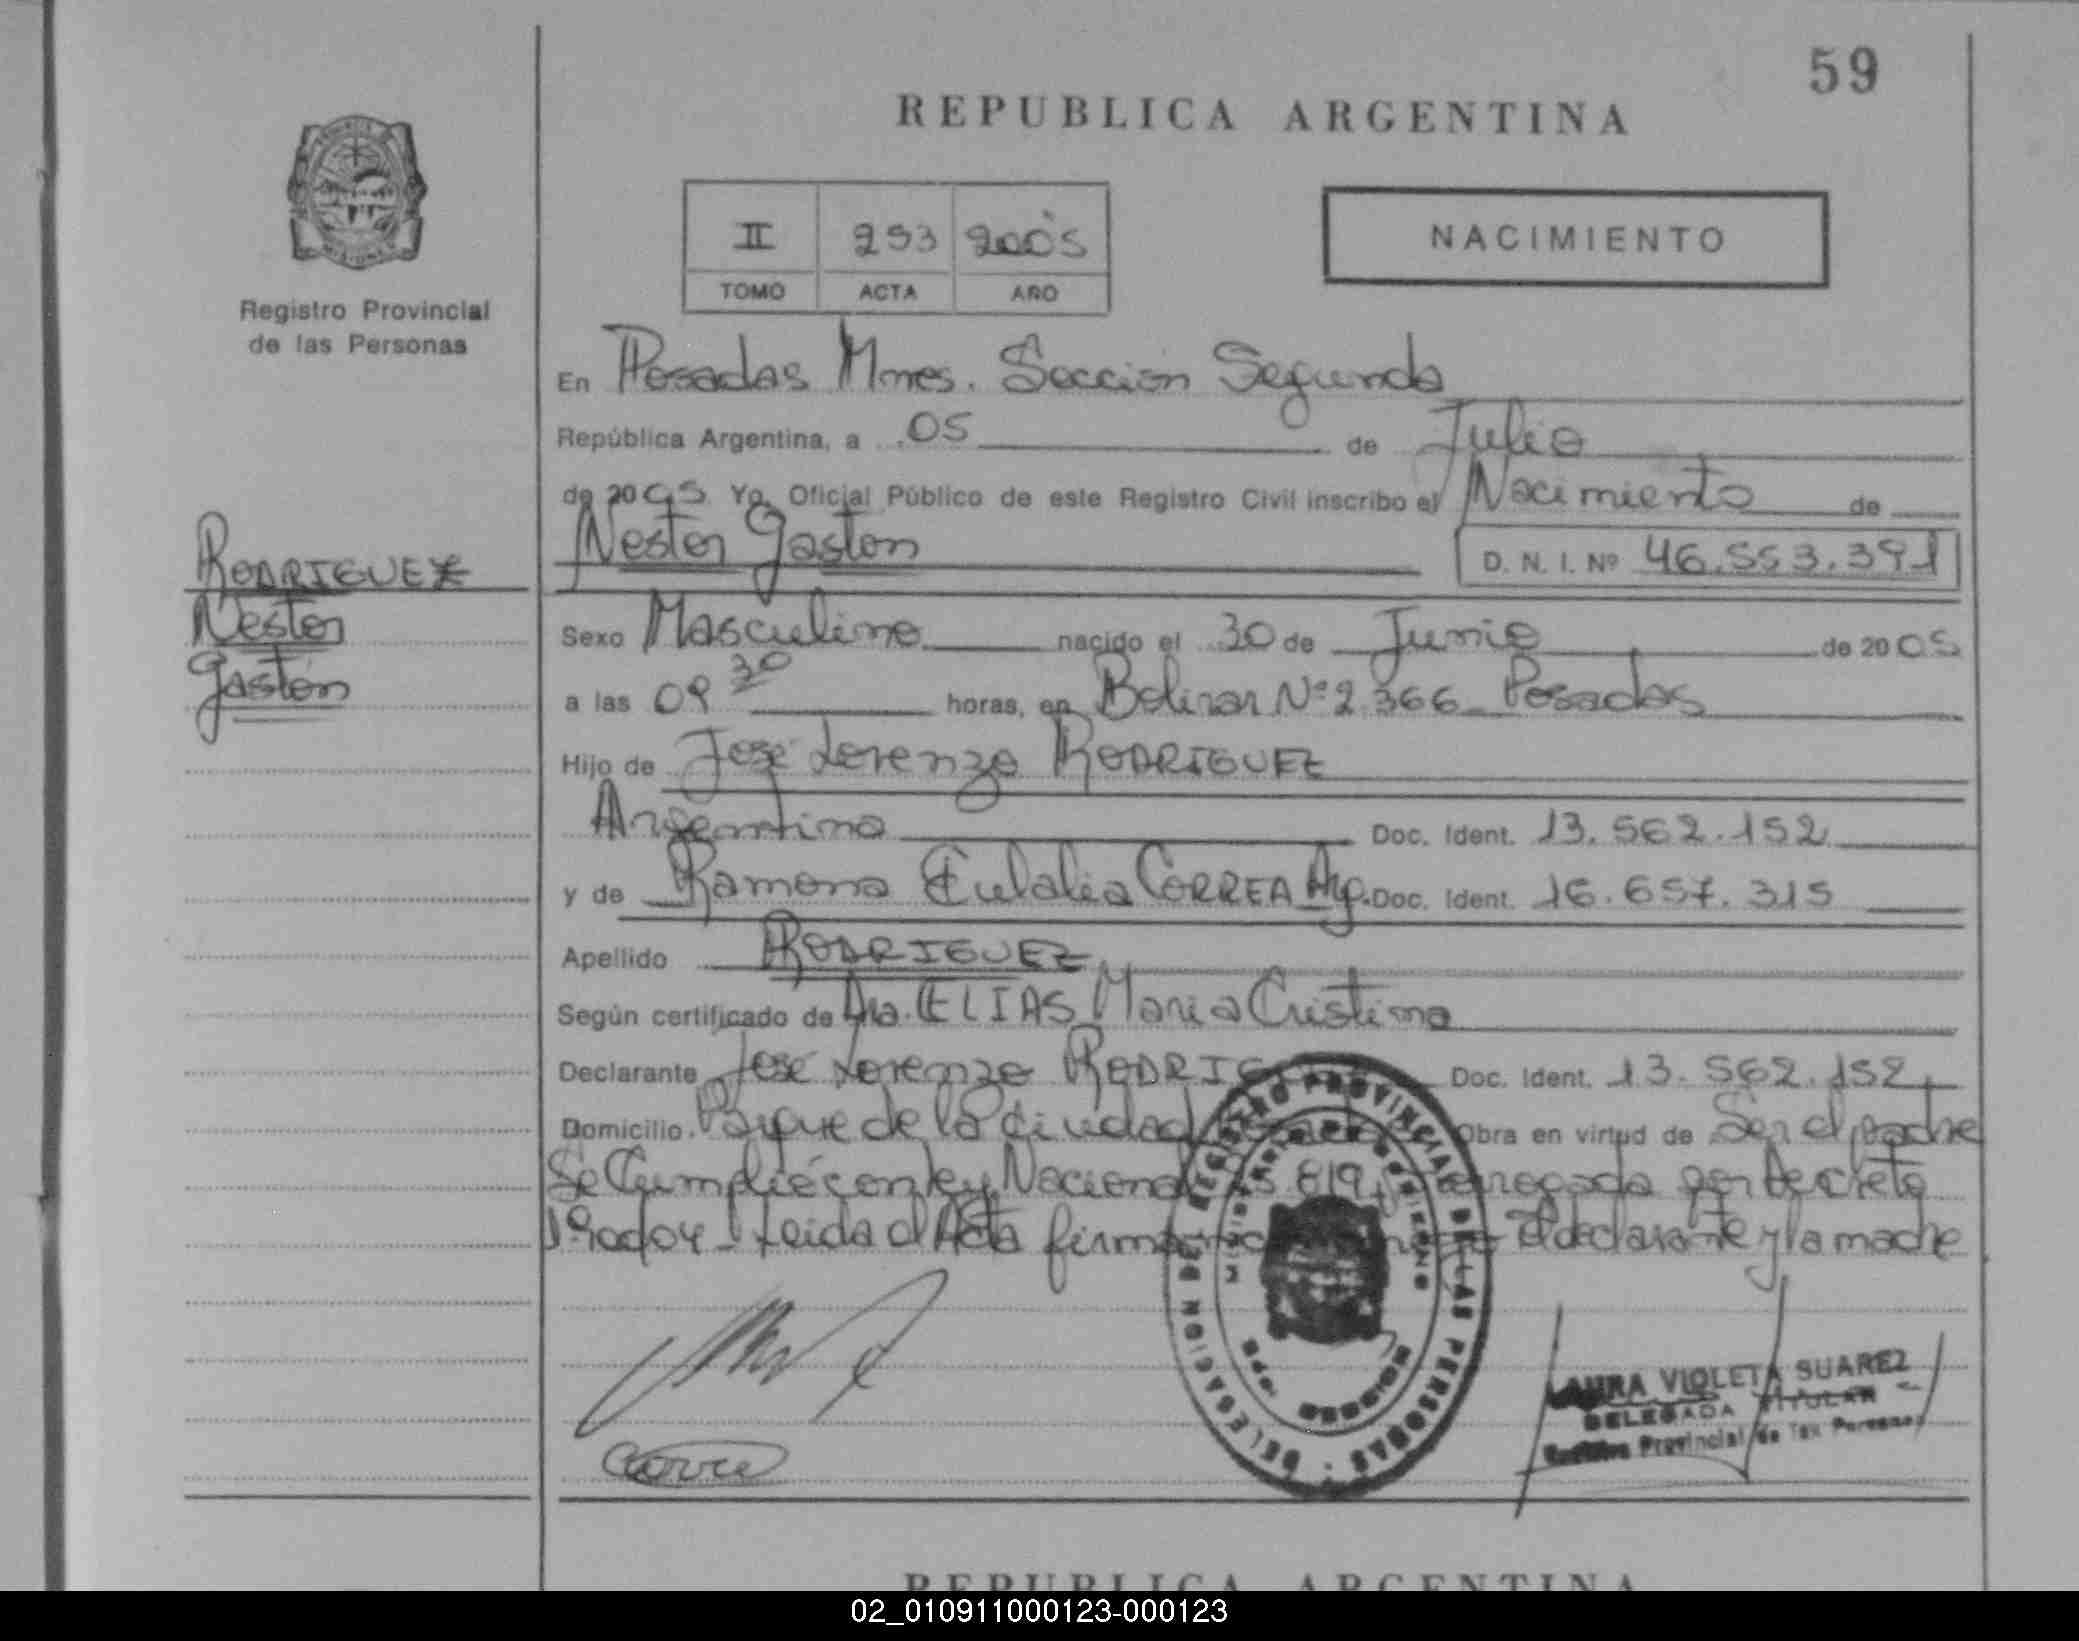 59
REPUBLICA ARGENTINA
II 293 2005
TOMO ACTA AÑO
NACIMIENTO
Registro Provincial
de las Personas
En Posadas Mnes. Sección Segunda
República Argentina, a 05 de Julio
de 2005 Yo, Oficial Público de este Registro Civil inscribo el Nacimiento de
Nestor Gaston D. N. I. Nº 46.553.391
RODRIGUEZ
Nestor
Gaston
Sexo Masculino nacido el 30 de Junio de 2005
a las 09 30 horas, en Bolivar Nº 2.366 Posadas
Hijo de José Lorenzo RODRIGUEZ
Argentino Doc. Ident. 13.562.152
y de Ramona Eulalia CORREA Arg. Doc. Ident. 16.657.315
Apellido RODRIGUEZ
Según certificado de Dra. ELIAS Maria Cristina
Declarante José Lorenzo RODRIG Doc. Ident. 13.562.152
Domicilio Parque de la Ciudad Obra en virtud de Ser el padre
Se Cumplió con ley Nacional 819, por Decreto
Leida el Acta el declarante y la madre
REGISTRO PROVINCIAL DE LAS PERSONAS
DELEGACION
LAURA VIOLETA SUAREZ
DELEGADA TITULAR
Registro Provincial de las Personas
Correa
REPUBLICA ARGENTINA
02_010911000123-000123